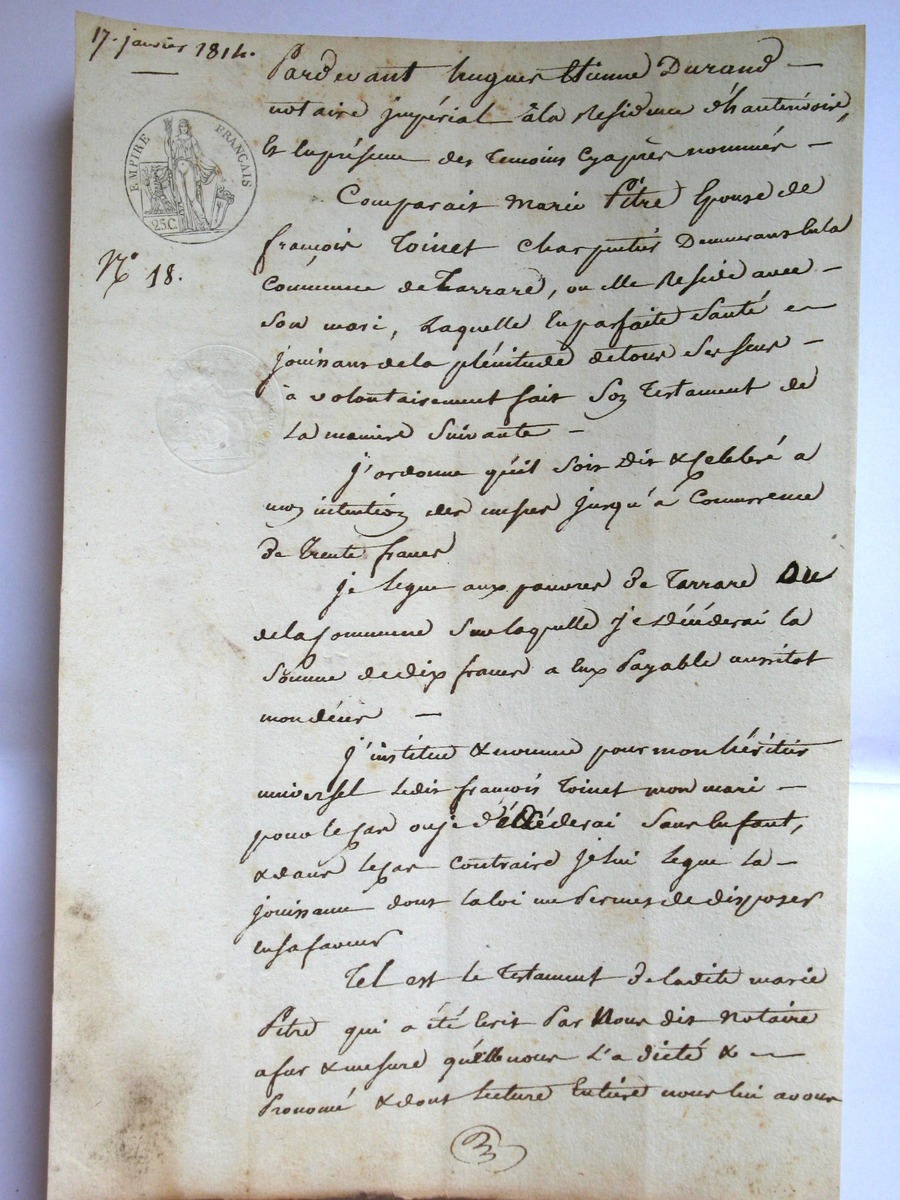 17. janvier 1814.
Pardevant hugues Etienne Durand
notaire jmpérial àla Residence d'hauterivoire,
Et Enprésence des Temoins Cyaprès nommés
EMPIRE FRANÇAIS
25 C.
Comparait marie Pitre Epouse de
françois Toinet Charpentier Demeurant Enla
Nº 18.
Commune de Tarrare, ou elle Reside avec
Son mari, Laquelle Enparfaite Santé et
jouissant dela plénitude detous Ses sens
à volontairement fait Son Testament de
La maniere Suivante
j'ordonne qu'il Soit Dit & Celebré a
mon intention des messes jusqu'a Concurrence
De Trente francs
je legue aux pauvres De Tarrare Ou
dela Commune Sur laquelle je Décéderai la
Somme dedix francs a Eux Payable aussitot
mon décès
j'institue & nomme pour mon héritier
universel Ledit françois Toinet mon mari
pour le Cas ou je décéderai Sans Enfant,
& dans le Cas Contraire je lui legue la
jouissance dont la loi me Permet de disposer
En sa faveur
Tel est le Testament De ladite marie
Pitre qui a été Ecrit Par Nous dit Notaire
a fur & mesure qu'elle nous L'a dicté &
Prononcé & dont Lecture Entière nous lui avons